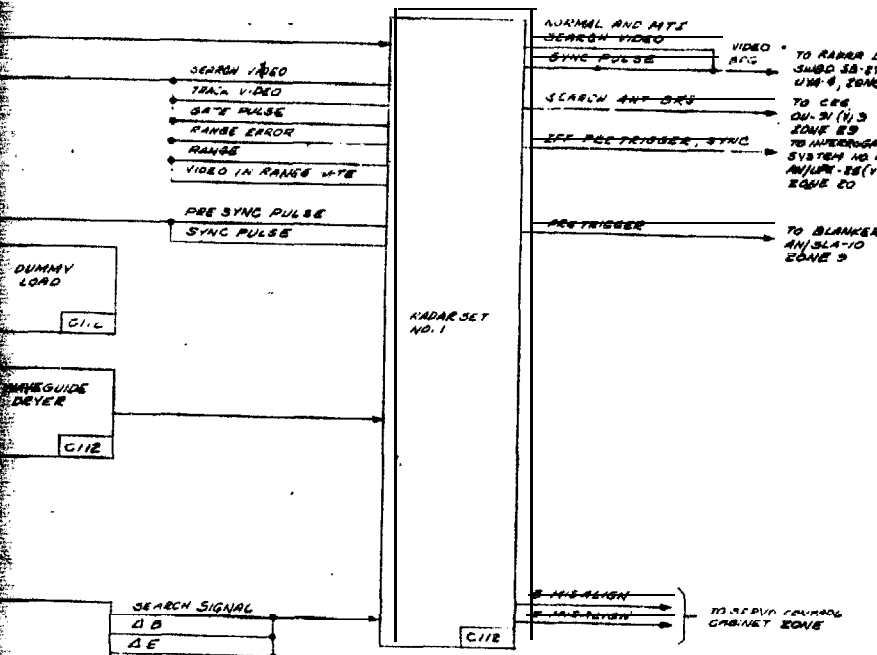 SEARCH VIDEO
TRACK VIDEO
GATE PULSE
RANGE ERROR
RANGE
VIDEO IN RANGE GATE
PRE SYNC PULSE
SYNC PULSE
DUMMY
LOAD
WAVEGUIDE
DRYER
C112
SEARCH SIGNAL
Δ B
Δ E
RADAR SET
NO. 1
C112
NORMAL AND MTI
SEARCH VIDEO
SYNC PULSE
VIDEO
SEARCH ANT BRG
IFF PRE TRIGGER, SYNC
PRE TRIGGER
TO RADAR
TO
ZONE
TO
SYSTEM NO.
ZONE 20
TO BLANKER
AN/SLA-10
ZONE 9
B MISALIGN
E MISALIGN
TO SERVO CONTROL
CABINET ZONE